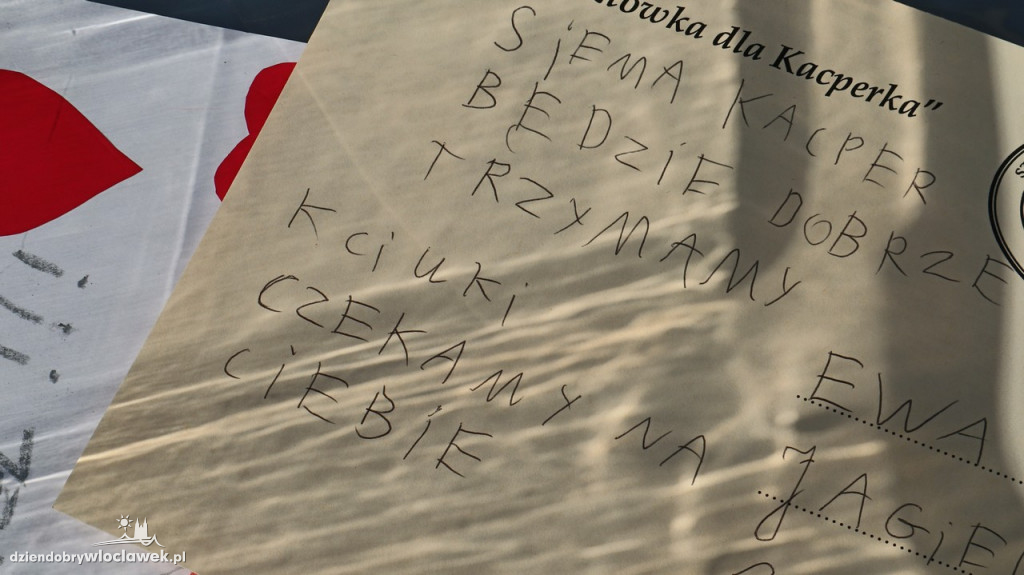 dla Kacperka”
SiEMA KACPER
BĘDZiE DOBRZE
TRZYMAMY
KciuKi
CZEKAMY NA
CiEBiE
EWA
dziendobrywloclawek.pl